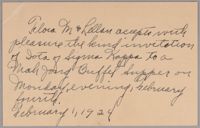 Flora M. Kellan accepts with
pleasure the kind invitation
of Iota of Sigma Kappa to a
Mah Jong Buffet supper on
Monday evening, February
fourth.
February 1, 1924